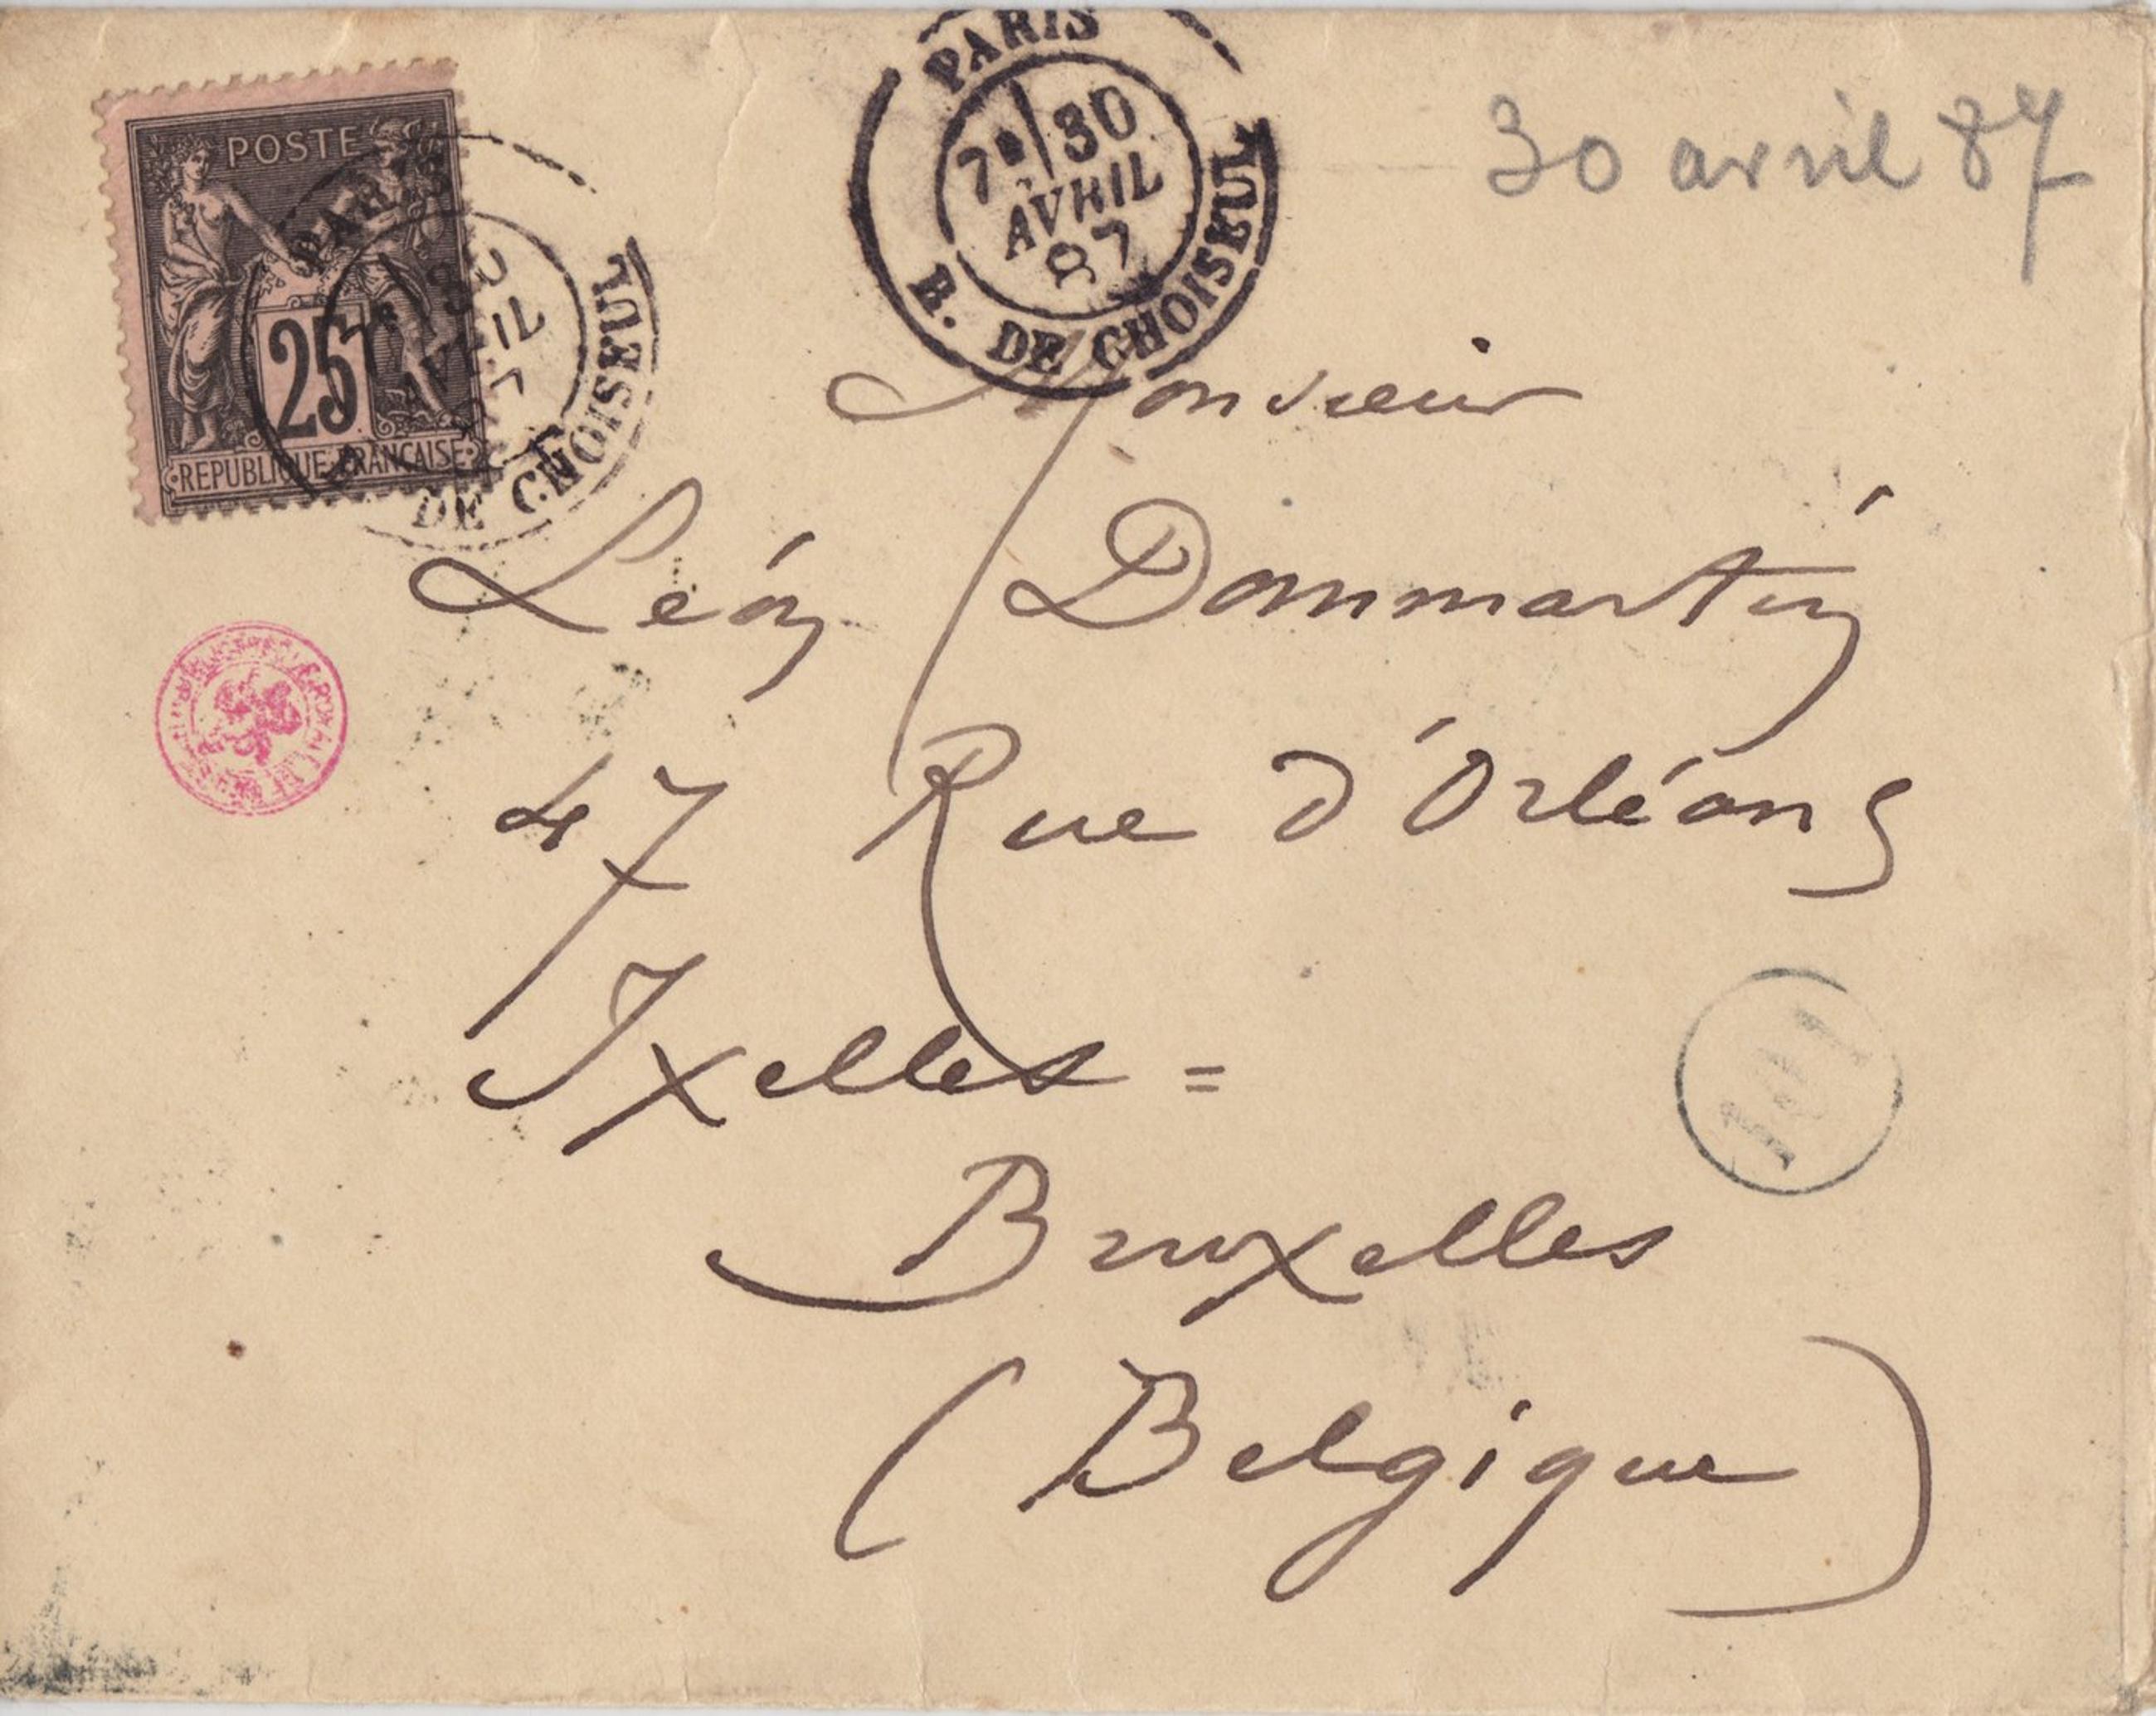 POSTE
25
REPUBLIQUE FRANÇAISE
PARIS
30
AVRIL
87
DE CHOISEUL
PARIS
7ᵉ 30
AVRIL
87
R. DE CHOISEUL
30 avril 87
Monsieur
Léon Dommartin
47 Rue d'Orléans
Ixelles =
Bruxelles
(Belgique)